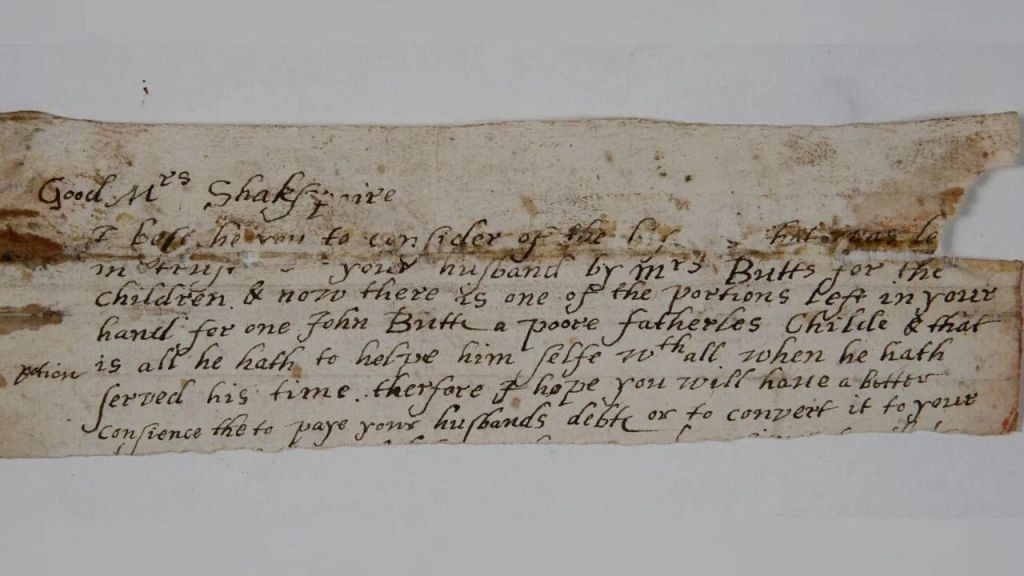 Good Mrs Shakspaire
I beseche you to consider of the that was le
in trust your husband by Mrs Butts for the
Children & now there is one of the portions left in your
hand for one John Butte a poore fatherles Childe & that
is all he hath to helpe him selfe wth all when he hath
petion
served his time therfore I hope you will have a better
Consience the to paye your husbands debte or to convert it to your